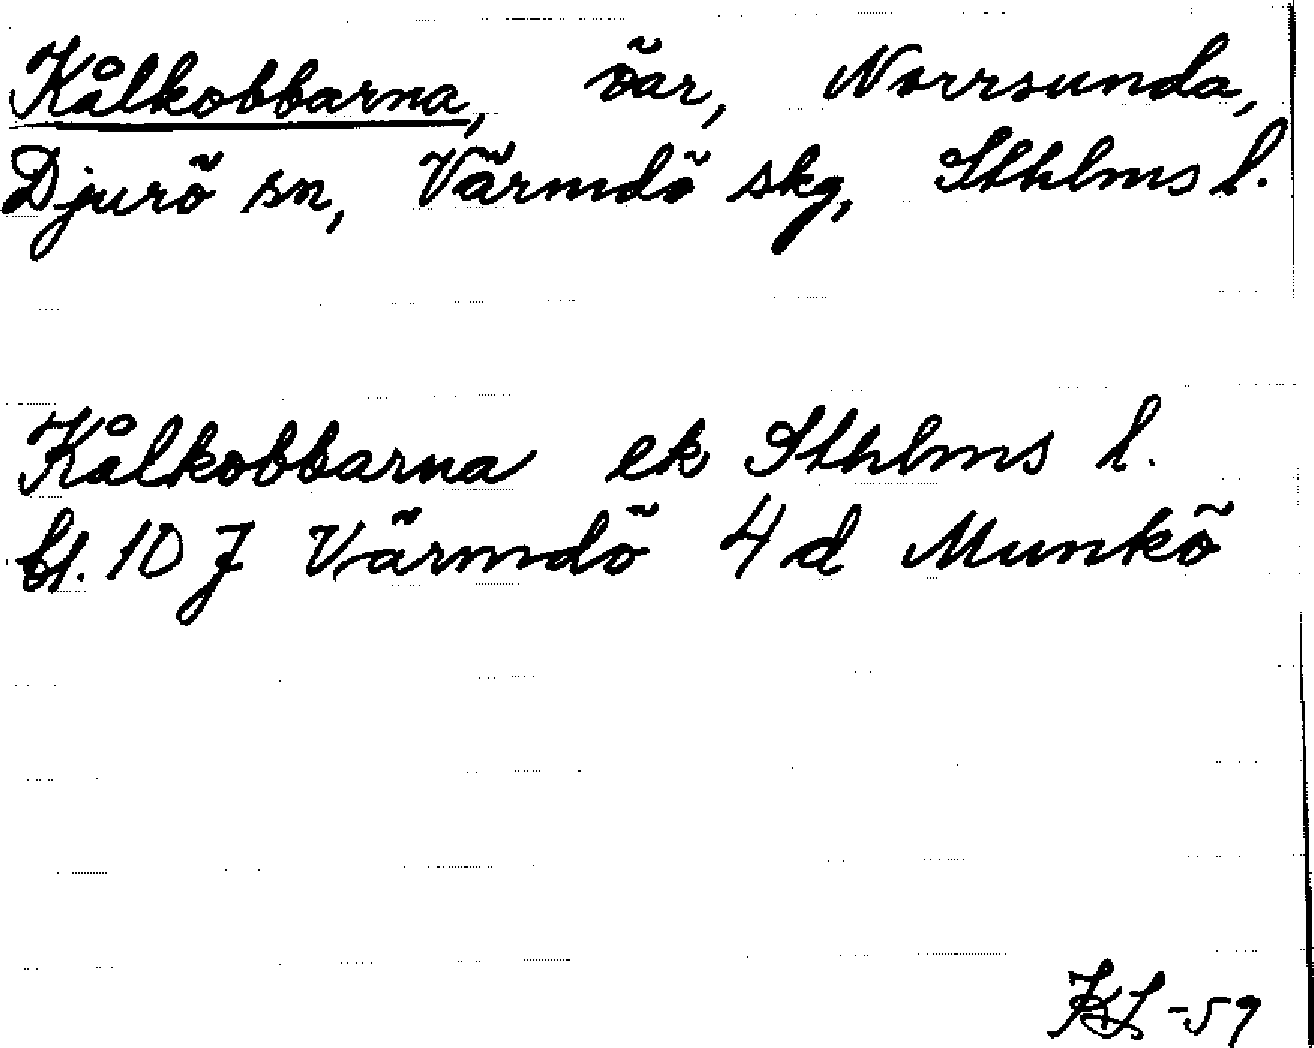 Kålkobbarna, öar, Norrsunda,
Djurö sn, Värmdö skg, Sthlms l.
Kålkobbarna ek Sthlms l.
bl. 10 J Värmdö 4 d Munkö
KL -59